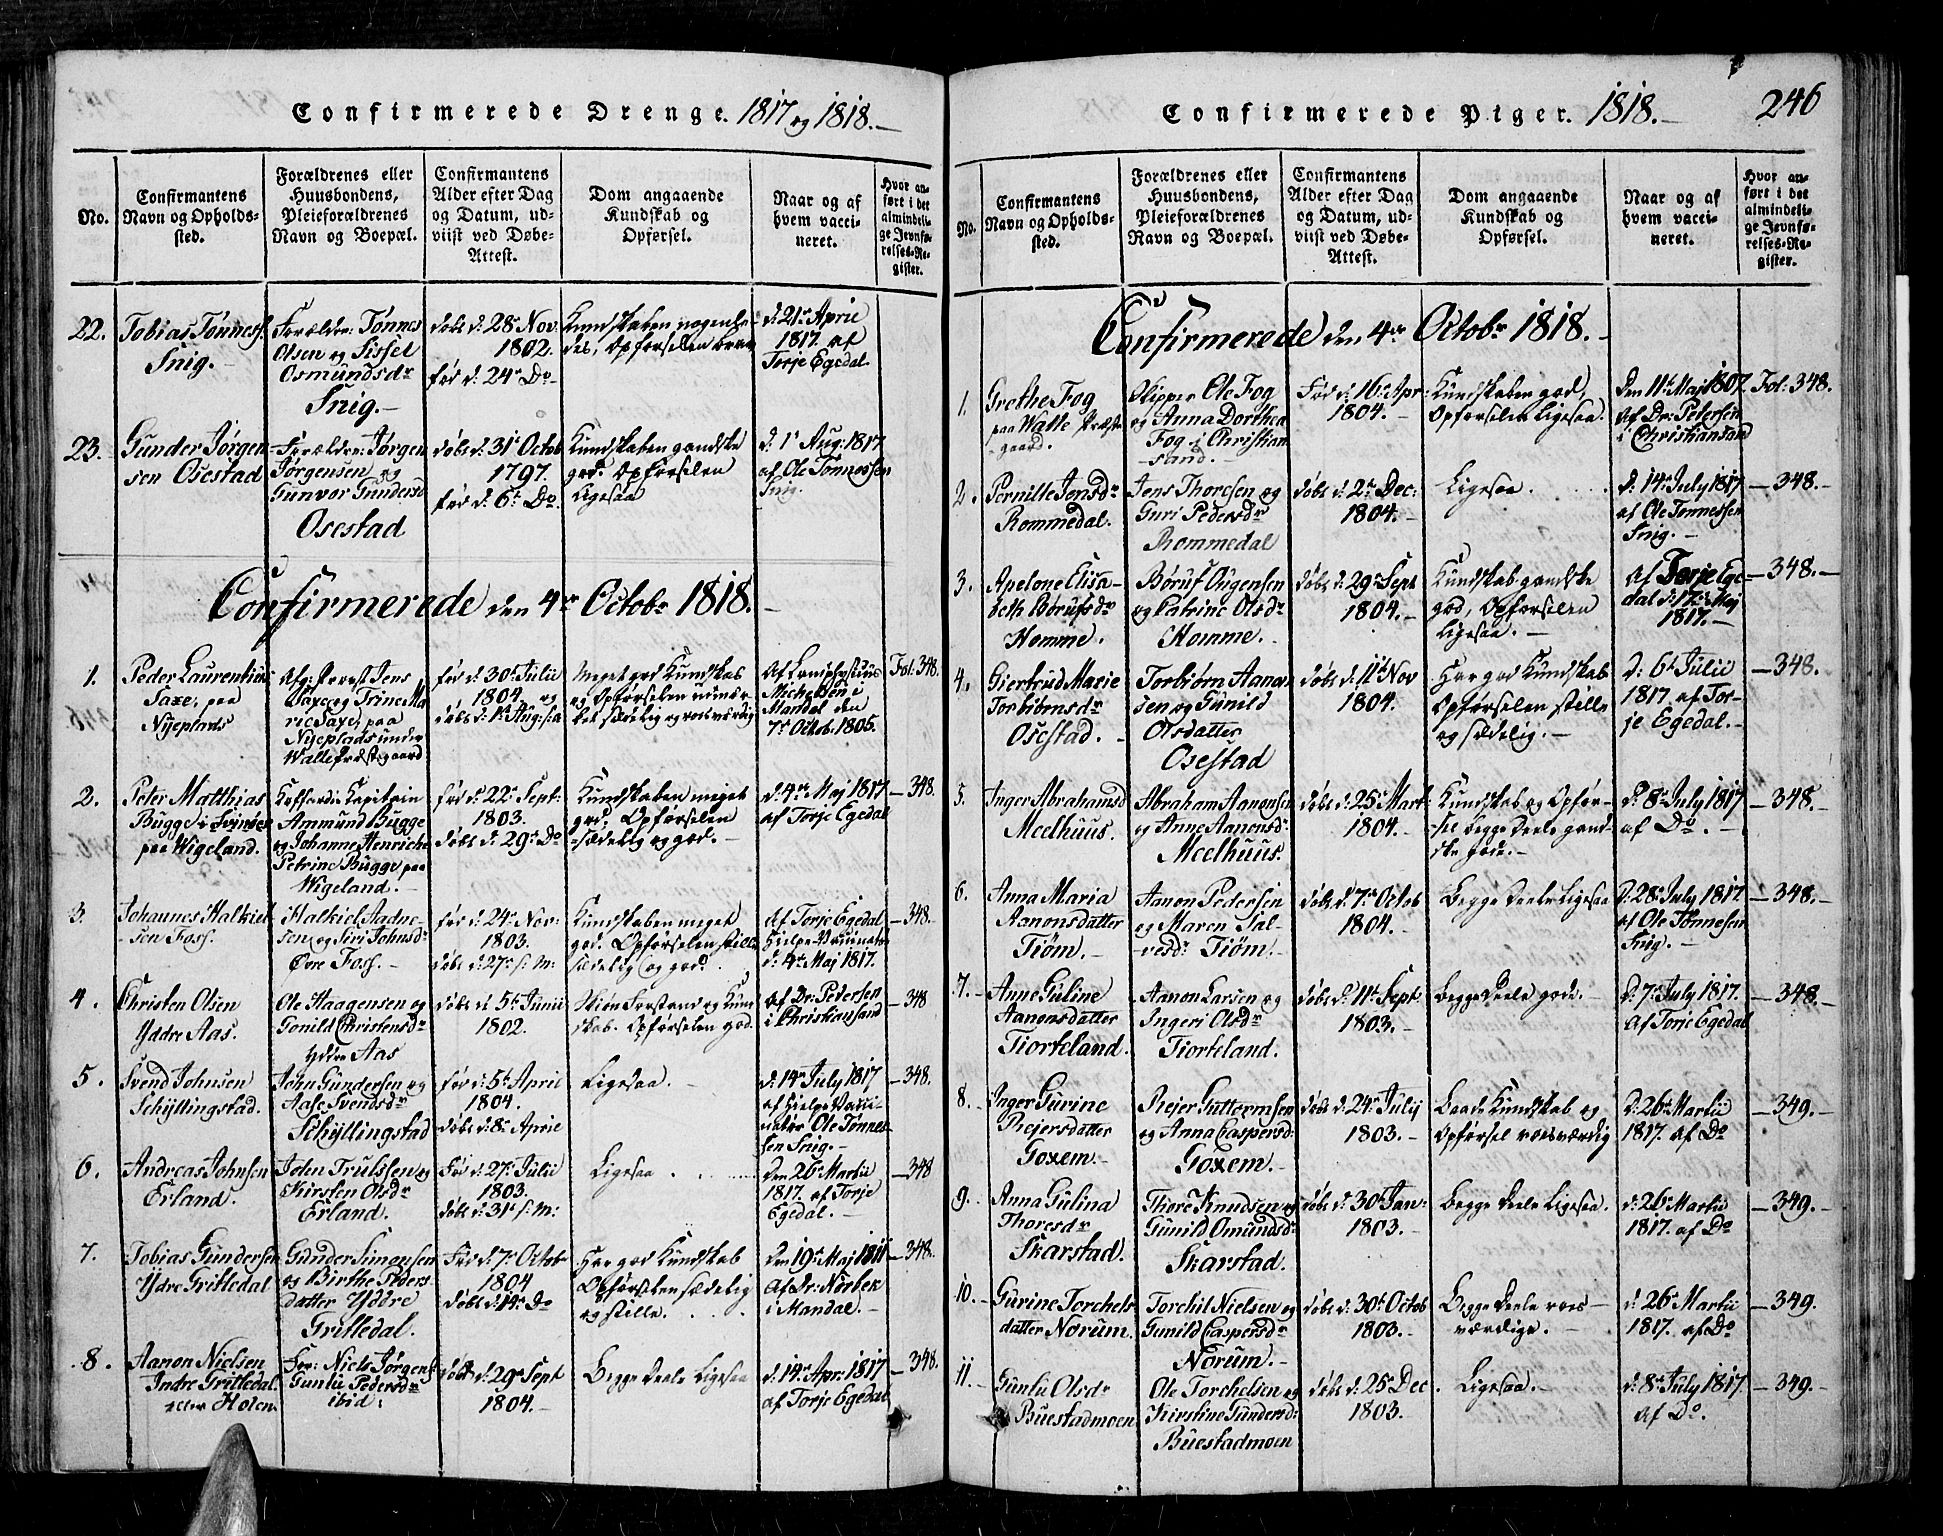 Confirmerede Drenge. 1817 og 1818.
No.
Confirmantens
Navn og Opholds-
sted.
Forældrenes eller
Huusbondens,
Pleieforældrenes
Navn og Boepæl.
Confirmantens
Alder efter Dag
og Datum, ud-
viist ved Døbe-
Attest.
Dom angaaende
Kundskab og
Opførsel.
Naar og af
hvem vacci-
neret.
Hvor an-
ført i det
almindeli-
ge Jevnfø-
relses-Re-
gister.
22.
Tobias Tønness.
Snig.
Forældre: Tønnes
Olsen og Sissel
Osmundsdr
Snig.
døbt d: 28de Nov.
1802.
fød d: 24de Do
Kundskaben nogenle-
des, Opførselen brav
d: 21de April
1817. af
Torje Egedal
23.
Gunder Jørgen
sen Osestad
Forældre: Jørgen
Jørgensen og
Gunvor Gundersd
Osestad
døbt d: 31te Octob
1797.
fød d: 6te Do.
Kundskaben gandske
god. Opførselen
Ligesaa
d. 1te Aug: 1817
af Ole Tønnessen
Snig.
Confirmerede den 4de Octobr 1818.
1.
Peder Laurentius
Saxe, paa
Nyeplads
Afg: Præst Jens
Saxe og Trine Ma
rie Saxe, paa
Nyeplads under
Walle Præstegaard
fød d: 30te Julii
1804. og
døbt d: 1te Aug: s: a
Meget god Kundskab
og Opførselen udmær-
ket sædelig og roesværdig
Michelsen i
Mandal den
7de Octob. 1805.
Fol: 348.
2.
Peter Matthias
Bugge i Svinøer
paa Wigeland.
Kofferdie Capitain
Ammund Bugge
og Johanne Henriche
Petrine Bugge paa
Wigeland.
fød d: 22de Sept:
1803.
døbt d: 29de Do
Kundskaben meget
god. Opførselen
sædelig og god.
d: 4de Maj 1817
af Torje Egedal
348.
3.
Johannes Halkiel
sen Foss.
Halkiel Aadne-
sen og Siri Johnsdr
Øvre Foss.
fød d: 24de Nov:
1803.
døbt d: 27de s: M:
Kundskaben meget
god. Opførselen stille
sædelig og god.
Af Torje Egedal
Hielpe-Vaccinatør
d: 4de Maj 1817.
348.
4.
Christen Olsen
Ydre Aas.
Ole Haagensen og
Gonild Christensdr
Ydre Aas
døbt d 5te Junii
1802.
Skiøn Forstand og Kund
skab. Opførselen god.
Af Dr. Petersen
i Christiansand
348
5.
Svend Johnsen
Schyllingstad.
John Gundersen og
Aase Svendsdr
Schyllingstad
fød d: 5te April
1804.
døbt d: 8de April
Ligesaa.
d: 14de July 1817
af Hielpe Vacci-
natør Ole Tønnes-
sen Snig.
348.
6.
Andreas Johnsen
Erland.
John Trulssen og
Kirsten Olsdr
Erland.
Fød d: 27de Julii
1803.
døbt d: 31te s: M:
Ligesaa
Den 26de Martii
1817. af Torje
Egedal.
348
7.
Tobias Gundersen
Ydre Gritledal
Gunder Simensen
og Birthe Peders
datter Ydre
Gritledal.
Fød d: 7de Octob
1804
døbt d: 14de Do
Har god Kundskab
Opførselen sædelig
og stille.
Den 19de Maj 1811
af Dr. Norbek
i Mandal.
348.
8.
Aanon Nielsen
Indre Gritledal
eller Holen
For: Niels Jørgens
Gunlu Pedersdr
ibid:
døbt d: 29de Sept
1804.
Begge Deele Ligesaa
d: 14de Apr: 1817
af Torje Egedal
348.
Confirmerede Piger. 1818.
246
No.
Confirmantens
Navn og Opholds-
sted.
Forældrenes eller
Huusbondens,
Pleieforældrenes
Navn og Boepæl.
Confirmantens
Alder efter Dag
og Datum, ud-
viist ved Døbe-
Attest.
Dom angaaende
Kundskab og
Opførsel.
Naar og af
hvem vacci-
neret.
Hvor an-
ført i det
almindeli-
ge Jevnfø-
relses-Re-
gister.
Confirmerede den 4de Octobr 1818.
1.
Grethe Fog
paa Walle Præste
gaard.
Skipper Ole Fog
og Anna Dorthea
Fog i Christian
sand.
Fød d: 16de Apr
1804.
Kundskaben god,
Opførselen Ligesaa.
Den 11te Maj 1807.
af Dr: Petersen
i Christiansand
Fol: 348.
2.
Pernille Jensdr
Rommedal.
Jens Thoresen og
Guri Pedersdr
Rommedal
døbt d: 2de Dec:
1804.
Ligesaa.
d: 14de July 1817
af Ole Tønnessen
Snig.
348.
3.
Apelone Elisa-
beth Børufsdr
Homme.
Børuf Augensen
og Catrine Olsdr
Homme.
døbt d: 29de Sept
1804.
Kundskab gandske
god, Opførselen
Ligesaa.
Af Torje Ege
dal d: 17de Maj
1817.
348.
4.
Giertrud Marie
Torbiørnsdr
Osestad.
Torbiørn Aanon
sen og Gunild
Olsdatter
Osestad
døbt d: 11te Nov
1804.
Har god Kundskab
Opførselen stille
og sædelig.
D: 6te Julii
1817. af Tor-
je Egedal.
348.
5.
Inger Abrahamsd
Meelhuus.
Abraham Aanonsen
og Anne Aanonsd:
Meelhuus.
døbt d: 25de Mart:
1804.
Kundskab og Opfør-
sel begge Deele gand-
ske gode.
D: 8de July 1817
af Do.
348.
6.
Anna Maria
Aanonsdatter
Tiøm.
Aanon Pedersen
og Maren Sal-
vesdr Tiøm.
døbt d. 7de Octob
1804.
Begge Deele Ligesaa
D: 28de July 1817
af Ole Tønnesen
Snig.
348.
7.
Anne Guline
Aanonsdatter
Tiorteland.
Aanon Larsen og
Ingeri Olsdr
Tiorteland.
døbt d: 11te Sept
1803.
Begge Deele gode.
D: 7de July 1817.
Af Torje Egedal
348.
8.
Inger Gurine
Rejersdatter
Goxem.
Rejer Guttormsen
og Anna Caspersd:
Goxem.
døbt d: 24de July
1803.
Baade Kundskab og
Opførsel roesværdig
D: 26de Martii
1817. af Do
349.
9.
Anna Gulina
Thoresdr
Skarstad.
Thore Knudsen og
Gunild Omundsd:
Skarstad.
døbt d: 30te Jan:
1803.
Begge Deele Ligesaa.
d: 26de Martii
1817. af Do
349.
10.
Gurine Torchels
datter Norum.
Torchil Nielsen og
Gunild Caspersdr
Norum.
døbt d: 30te Octob
1803.
Begge Deele roes-
værdige.
d: 26de Martii
1817. af Do
349.
11.
Gunlu Olsdr
Buestadmoen
Ole Torchelsen og
Kirstine Gundersd:
Buestadmoen
døbt d: 25de Dec
1803.
Ligesaa.
d: 8de July 1817.
af Do.
349.